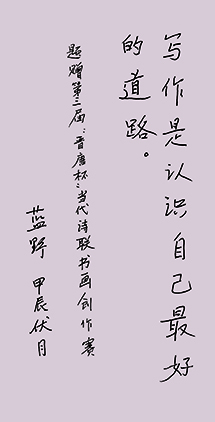 写作是认识自己最好
的道路。
题赠第三届“晋唐杯”当代诗联书画创作赛
蓝野 甲辰伏月